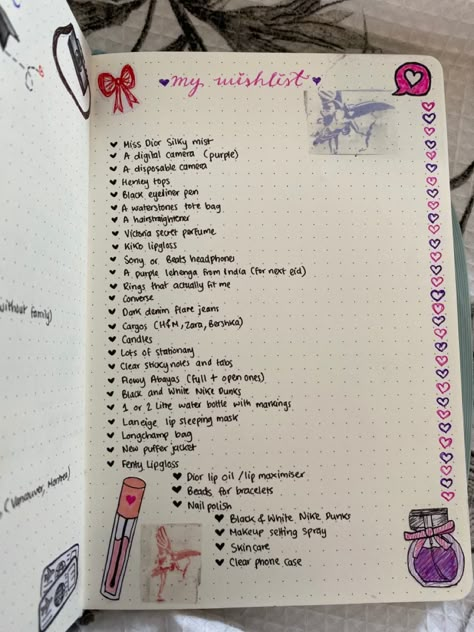 my wishlist
Miss Dior Silky mist
A digital camera (purple)
A disposable camera
Henley tops
Black eyeliner pen
A waterstones tote bag
A hairstraightener
Victoria secret perfume
Kiko lipgloss
Sony or Beats headphones
A purple lehenga from India (for next eid)
Rings that actually fit me
Converse
Dark denim flare jeans
Cargos (H&M, Zara, Bershka)
Candles
Lots of stationary
Clear sticky notes and tabs
Flowy Abayas (full + open ones)
Black and White Nike Dunks
1 or 2 Litre water bottle with markings
Laneige lip sleeping mask
Longchamp bag
New puffer jacket
Fenty Lipgloss
Dior lip oil / lip maximiser
Beads for bracelets
Nail polish
Black & White Nike Dunks
Makeup setting spray
Skincare
Clear phone case
without family)
(Vancouver,